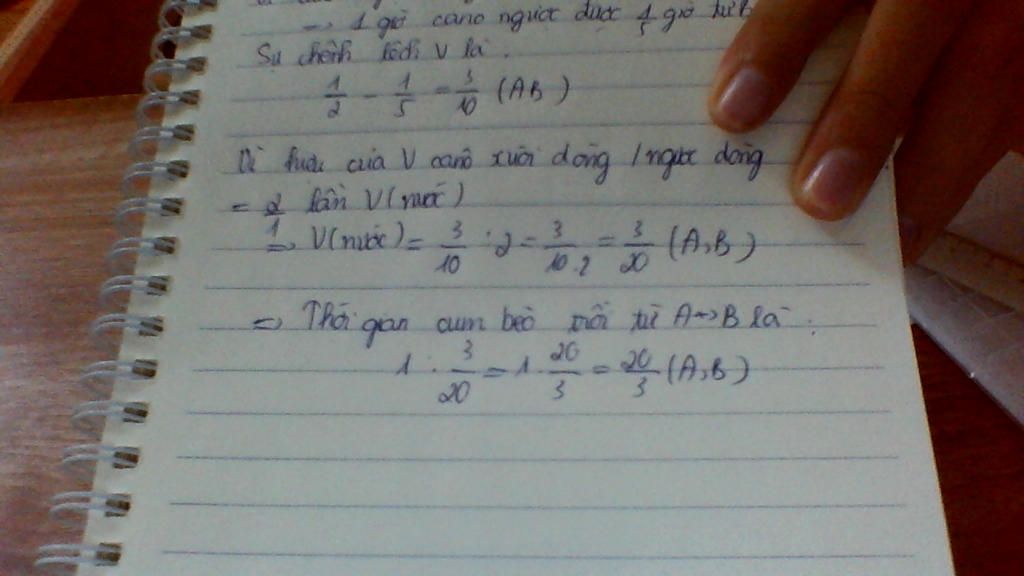 => 1 giờ cano ngược được 1/5 giờ từ B
Sự chênh lệch V là :
1/2 - 1/5 = 3/10 (AB)
Vì hiệu của V canô xuôi dòng / ngược dòng
= 2 lần V(nước)
=> V(nước) = 3/10 : 2 = 3/10.2 = 3/20 (A,B)
=> Thời gian cụm bèo trôi từ A->B là :
1 : 3/20 = 1 . 20/3 = 20/3 (A,B)